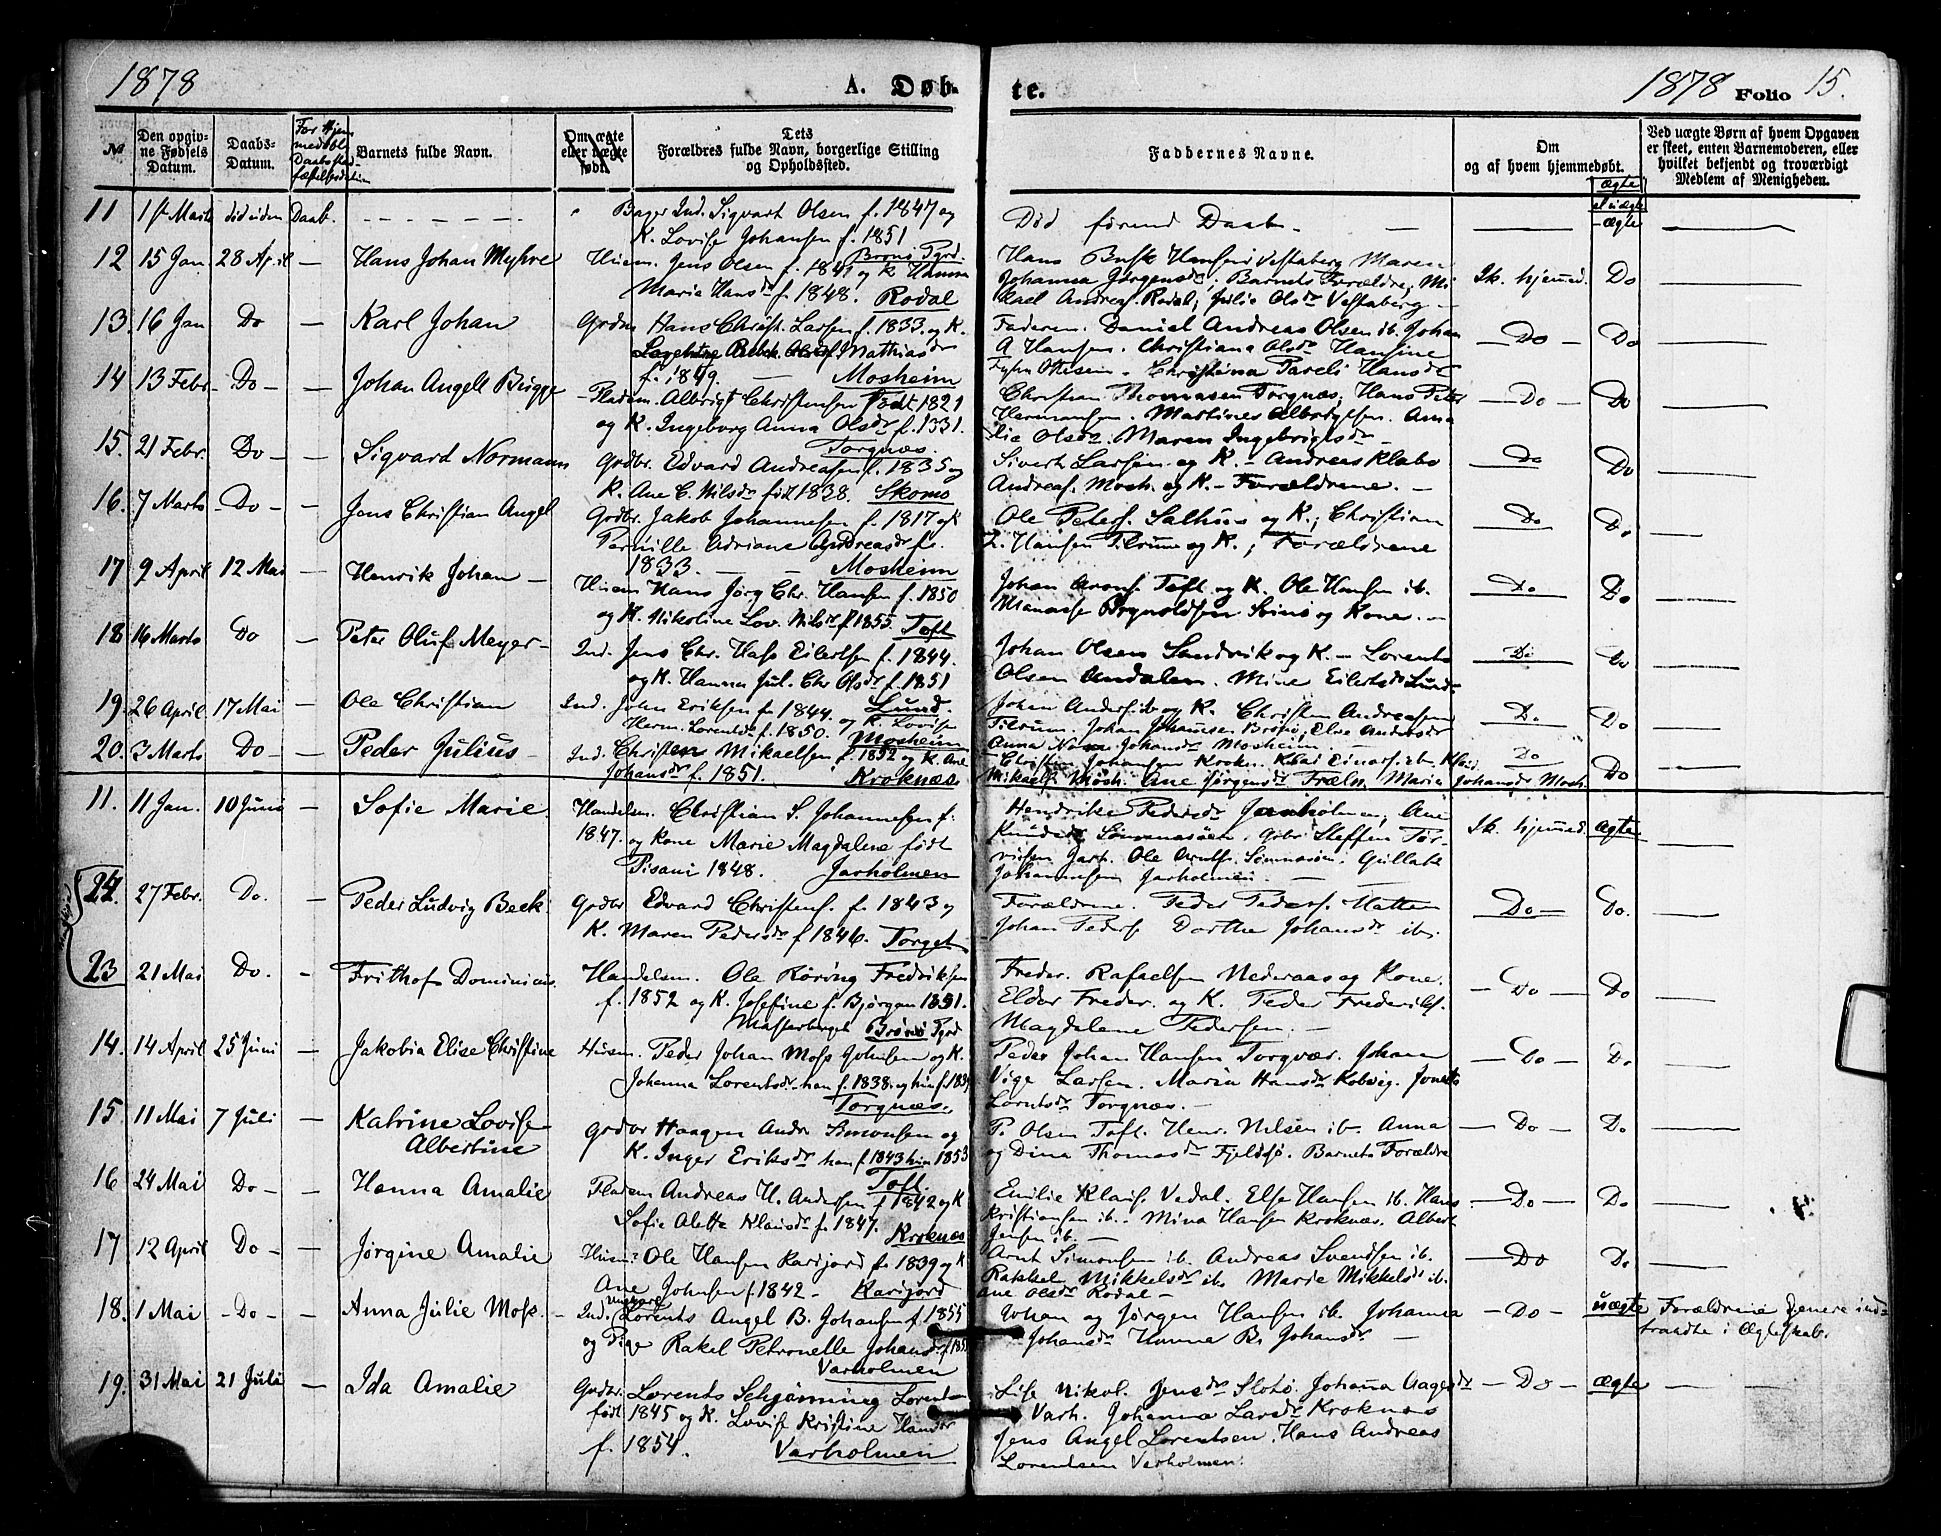 1878 A. Døb- te. 1878 Folio 15.
№
Den opgiv-
ne Fødsels
Datum.
Daabs-
Datum.
Barnets fulde Navn.
Om ægte
eller uægte
født.
Tets
Forældres fulde Navn, borgerlige Stilling
og Opholdssted.
Faddernes Navne.
Om
og af hvem hjemmedøbt.
ægte
el uægte
Ved uægte Børn af hvem Opgaven
er skeet, enten Barnemoderen, eller
hvilket bekjendt og troværdigt
Medlem af Menigheden.
11 1ste Marts død uden Daab. Bager Ind. Sigvart Olsen f. 1847 og
K. Lovise Johansen f. 1851
Død forend Daab ægte
Brønø Pgrd.
12 15 Jan 28 April Hans Johan Myhre Husm. Jens Olsen f. 1841 og K Hanna
Maria Hansdr f. 1848. Rodal
Hans Busk Hansen Vestaberg Maren
Johanna Jørgensdr, Barnets Forældre, Mi
kael Andreas. Rodal, Julie Olsdr Vestaberg
Ik. hjemmed. Do
13. 16 Jan Do Karl Johan Grdm Hans Christ. Larsen f. 1833. og K.
Mathiasdr
f. 1849. Mosheim
Faderen. Daniel Andreas Olsen ib. Johan
A Hansen. Christiana Olsdr Hansine
Do Do
14 13 Febr. Do Johan Angell Bugge Pladsm. Albrigt Christensen født 1821
og K. Ingeborg Anna Olsdr f. 1831.
Torgnæs.
Christian Thomasen Torgnæs, Hans Peter
Hermansen. Martines Albrigtsen. Ama
lia Olsdr. Maren Ingebrigtsdr
Do Do
15. 21 Febr. Do Sigvard Normann Grdbr. Edvard Andreasen f. 1835 og
K. Ane C. Nilsdr født 1838. Skomo
Sivert Larsen og K. - Andreas Klabo
Andreas. Mosh. og K. - Forældrene.
Do Do
16. 7 Marts Do Jens Christian Angel Grdbr. Jakob Johannesen f. 1817 og K
Pernille Adriane Andreasdr f.
1833. Mosheim
Ole Peters. Salhus og K., Christian
L. Hansen Tilrum og K.; Forældrene
Do Do
17 9 April 12 Mai Henrik Johan Husm Hans Jørg Chr. Hansen f. 1850
og K. Nikoline Lov. Nilsdr f. 1855. Toft
Johan Arons. Toft og K. Ole Hansen ib.
Manasse Brynoldsen Svinø og Kone.
Do Do
18 16 Marts Do Peter Oluf Meyer Ind. Jens Chr. Hass Eilertsen f. 1844.
og K. Hanna Jul. Chr Olsdr f. 1851
Lund.
Johan Olsen Sandvik og K. - Lorents
Olsen Andalen. Mine Eilertsdr Lund
Do Do
19. 26 April 17 Mai Ole Christian Ind. John Eriksen f. 1844. og K. Lovise
Herm. Lorentsdr f. 1850. Mosheim
Johan Anders. ib og K. Christen Andreasen
Tilrum. Johan Johansen Brønø, Else Andersdr
Anna Johansdr Mosheim.
Do Do
20. 3 Marts Do Peder Julius Ind. Christen Mikaelsen f. 1852 og K. Ane
Johansdr f. 1851. Kroknæs.
Christen Johansen Krokn.
Mikaels. Mosh. Ane Jørgensdr Maria Johansdr Mosh.
Do Do
11. 11 Jan. 10 Juni Sofie Marie. Handelsm. Christian S. Johannesen f.
1847. og Kone Marie Magdalene født
Pisani 1848. Jarholmen
Hendrikke Pedersdr Jarholmen, Ane
Knudsdr Sømnesøen, Grbr Steffen Tor
Jarh. Ole Arntsn. Sømnesøen. Gullak
Johannesen Jarholmen.
Ik. hjemmed. ægte
24. 27 Febr. Do. Peder Ludvig Beck. Grdbr Edvard Christens. f. 1843 og
K. Maren Pedersdr f 1846. Torget
Forældrene. Peder Peders. Hatten
Johan Peders Dorthe Johansdr ib.
Do Do.
23 21 Mai Do. Frithof Dominicus. Handelsm. Ole Røring Fredriksen
f. 1852 og K. Josefine f. Bjørgan 1851.
Brønø Pgrd
Freder. Rafaelsen Nederaas og Kone.
Eldor Freder. og K. Peder Frederiks.
Magdalene Pedersen.
Do Do
14. 14 April 25 Juni Jakobia Elise Christine Husm. Peder Johan Moss Johnsen og K.
Johanna Lorentsdr han f. 1838. og hun f. 1839
Torgnæs.
Peder Johan Hansen Torgvær. Johan
Vige Larsen. Maria Hansdr Kobvig. Jonetta
Lorntsdr Torgnæs.
Do Do
15 11 Mai 7 Juli Katrine Lovise
Albertine
Grdbr Haagen Andr Simonsen og
K. Inger Eriksdr han f. 1843 hun 1853
Toft.
P. Olsen Toft. Henr. Nilsen ib. Anna
og Dina Thomasdr Fjeldsø. Barnets Forældre
Do Do
16 24 Mai Do Hanna Amalie Pladsm Andreas H. Andersen f 1842 og K
Sofie Aletta Klausdr f. 1847. Kroknæs
Emilie Klaus. Vedal. Else Hansen ib. Hans
Kristiansen ib. Mina Hansen Kroknæs. Albert
Jensen ib.
Do Do
17 12 April Do Jørgine Amalie Husm: Ole Hansen Karijord f. 1839 og K
Ane Johnsen f. 1842 - Karijord
Arnt Simonsen ib. Andreas Svendsen ib.
Rakkel Mikkelsdr ib. Marie Mikkelsdr ib.
Ane Olsdr Rodal
Do Do
18. 1 Mai Do Anna Julie Mosk. Ind. Ungkarl Lorents Angel B. Johansen f. 1855
og Pige Rakel Petronelle Johansdr
Varholmen
Johan og Jørgen Hansen ib. Johanna
Johansdr Hanna B. Johansdr
Do uægte Forældrene senere ind-
traadte i Ægteskab.
19. 31 Mai 21 Juli Ida Amalie Grdbr. Lorents Schjønning Lorents
født 1845 og K. Lovise Kristine Hansdr
f. 1854. Varholmen
Lise Nikol. Jensdr Slotø. Johanna Aagesdr
Varh. Johanna Larsdr Kroknæs
Jens Angel Lorentsen. Hans Andreas
Lorentsen Varholmen.
Do ægte